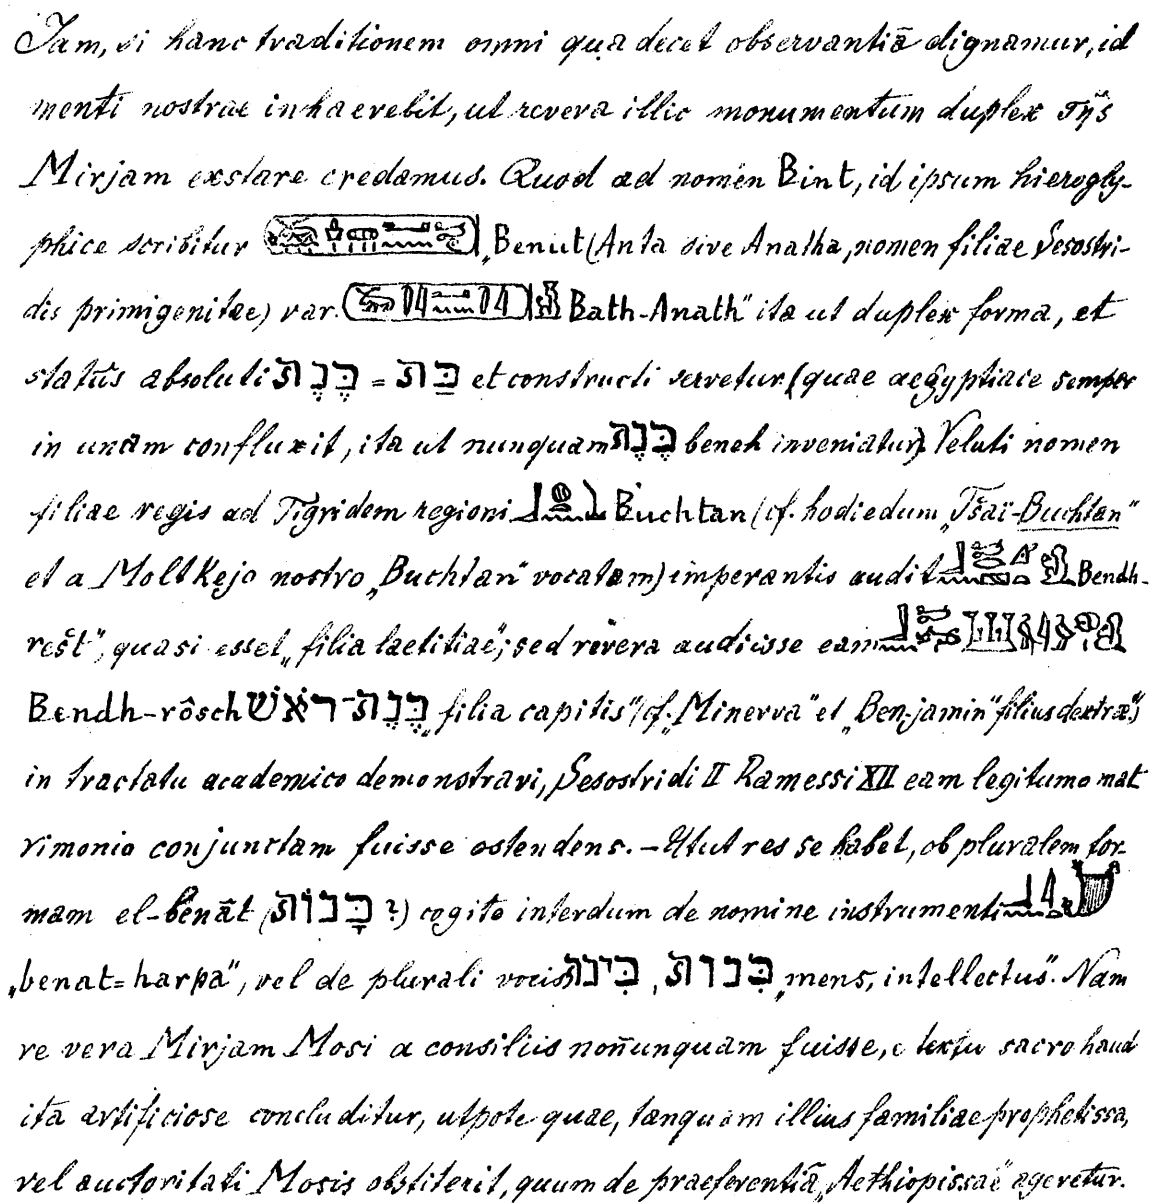 Jam, si hanc traditionem omni qua decet observantiā dignamur, id
menti nostrae inhaerebit, ut revera illic monumentum duplex τῆς
Mirjam exstare credamus. Quod ad nomen Bint, id ipsum hierogly-
phice scribitur „Benut (Anta sive Anatha, nomen filiae Sesostri-
dis primigenitae) var. Bath-Anath" ita ut duplex forma, et
statūs absoluti בֶּנֶת = בַּת et constructi servetur (quae aegyptiace semper
in unam confluxit, ita ut nunquam בֶּנֶת beneh inveniatur). Veluti nomen
filiae regis ad Tigridem regioni Buchtan (cf. hodiedum „Tšaï-Buchtan"
et a Moltkejo nostro „Buchtan" vocatam) imperantis audit Bendh-
rešt", quasi esset „filia laetitiae"; sed revera audiisse eam
Bendh-rôsch בֶּנֶת־רֹאשׁ „filia capitis" (cf. „Minerva" et „Ben-jamin" filius dextrae")
in tractatu academico demonstravi, Sesostridi II Ramessi XII eam legitumo mat
rimonio conjunctam fuisse ostendens. – Utut res se habet, ob pluralem for-
mam el-benāt (בָּנוֹת ?) cogito interdum de nomine instrumenti
„benat = harpa", vel de plurali vocis בִּינה, בִּנוֹת „mens, intellectus". Nam
re vera Mirjam Mosi a consiliis non̄unquam fuisse, e textu sacro haud
ita artificiose concluditur, utpote quae, tanquam illius familiae prophetissa,
vel auctoritati Mosis obstiterit, quum de praeferentiā „Aethiopissae" ageretur.